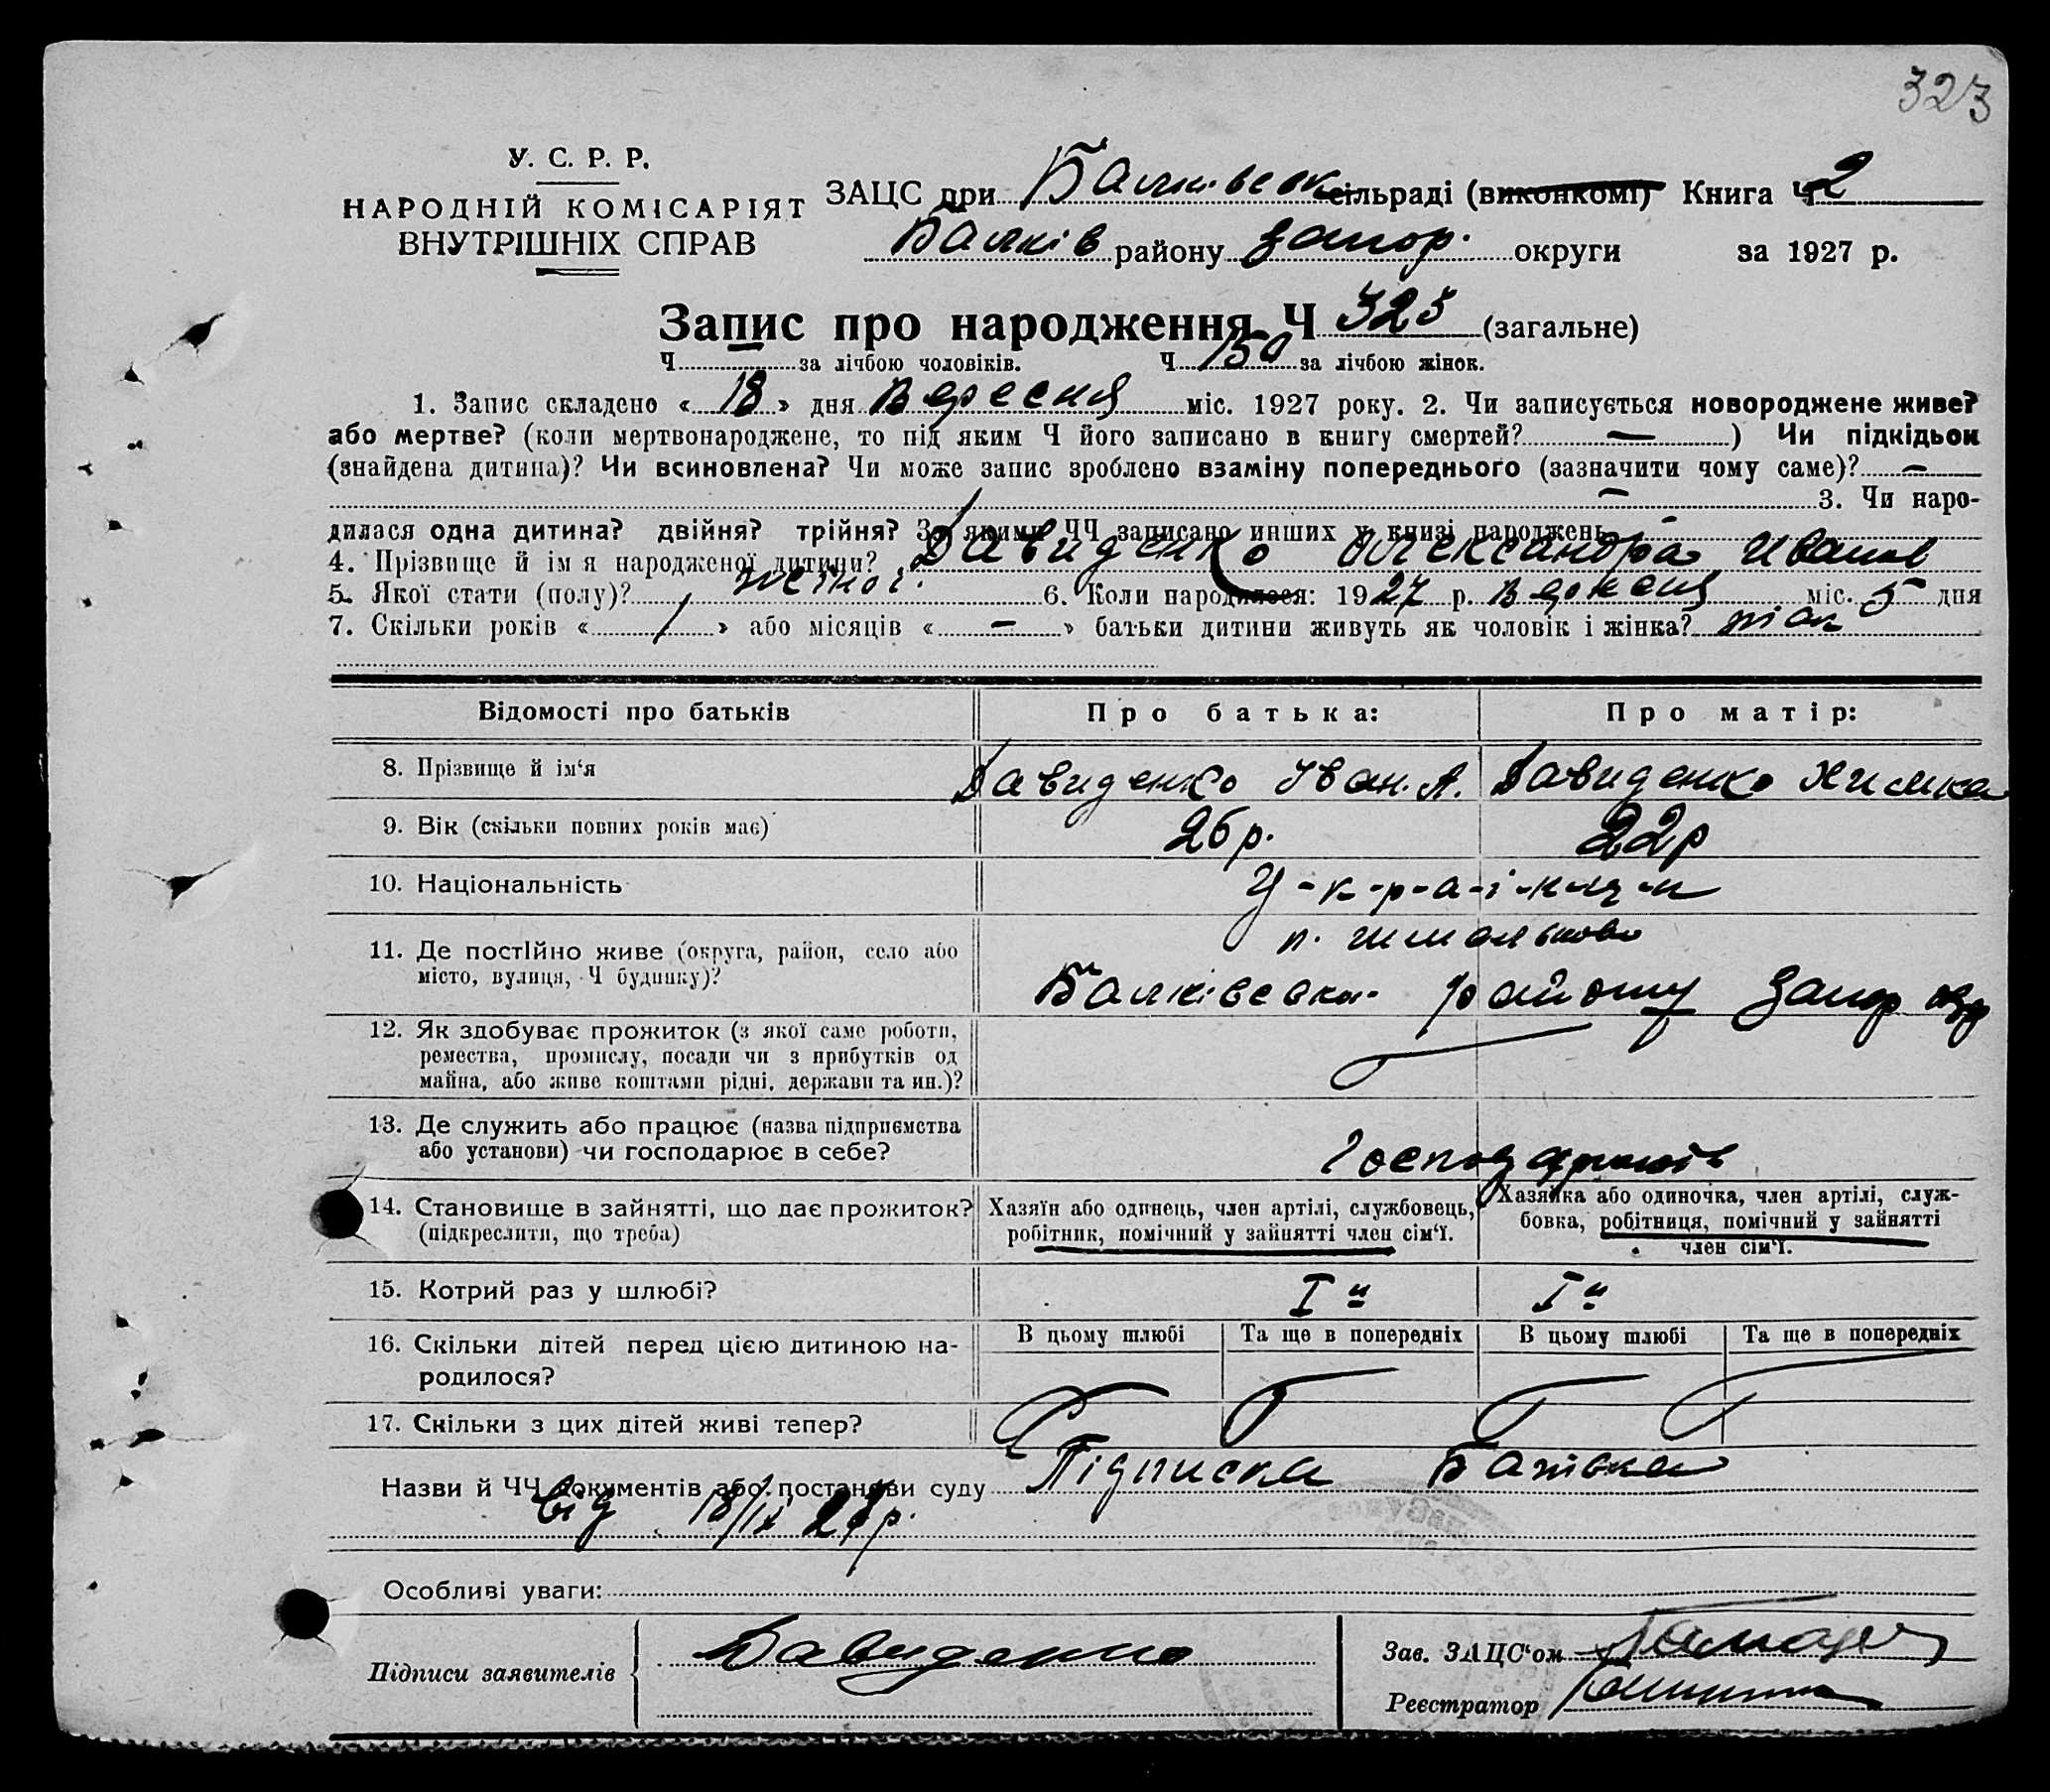 323
У. С. Р. Р.
НАРОДНІЙ КОМІСАРІЯТ
ВНУТРІШНІХ СПРАВ
ЗАЦС при Балківськ сільраді (виконкомі) Книга Ч 2
Балків району Запор. округи за 1927 р.
Запис про народження Ч 323 (загальне)
Ч — за лічбою чоловіків. Ч 150 за лічбою жінок.
1. Запис складено « 18 » дня Вересня міс. 1927 року. 2. Чи записується новороджене живе?
або мертве? (коли мертвонароджене, то під яким Ч його записано в книгу смертей? — ) Чи підкідьок
(знайдена дитина)? Чи всиновлена? Чи може запис зроблено взаміну попереднього (зазначити чому саме)? —
— 3. Чи наро-
дилася одна дитина? двійня? трійня? За якими ЧЧ записано инших у книзі народжень —
4. Прізвище й ім я народженої дитини? Давиденко Олександра Иванов
5. Якої стати (полу)? жіночої 6. Коли народилося: 1927 р. Вересня міс. 5 дня
7. Скільки років « 1 » або місяців « — » батьки дитини живуть як чоловік і жінка? так
Відомості про батьків Про батька: Про матір:
8. Прізвище й ім‘я Давиденко Іван. А. Давиденко Химка
9. Вік (скільки повних років має) 26 р. 22 р
10. Національність У-к-р-а-ї-н-ц-и
11. Де постійно живе (округа, район, село або
місто, вулиця, Ч будинку)? Балківськ. району Запор окр
12. Як здобуває прожиток (з якої саме роботи,
ремества, промислу, посади чи з прибутків од
майна, або живе коштами рідні, держави та ин.)?
13. Де служить або працює (назва підприємства
або установи) чи господарює в себе?
14. Становище в зайнятті, що дає прожиток?
(підкреслити, що треба)
Хазяїн або одинець, член артілі, службовець,
робітник, помічний у зайнятті член сім‘ї.
Хазяйка або одиночка, член артілі, служ-
бовка, робітниця, помічний у зайнятті
член сім‘ї.
15. Котрий раз у шлюбі? I й I й
16. Скільки дітей перед цією дитиною на-
родилося?
В цьому шлюбі Та ще в попередніх В цьому шлюбі Та ще в попередніх
17. Скільки з цих дітей живі тепер?
Назви й ЧЧ документів або постанови суду Підписка Батька
від 18/IX 27 р.
Особливі уваги:
Підписи заявителів Давиденко
Зав. ЗАЦС‘ом
Реєстратор